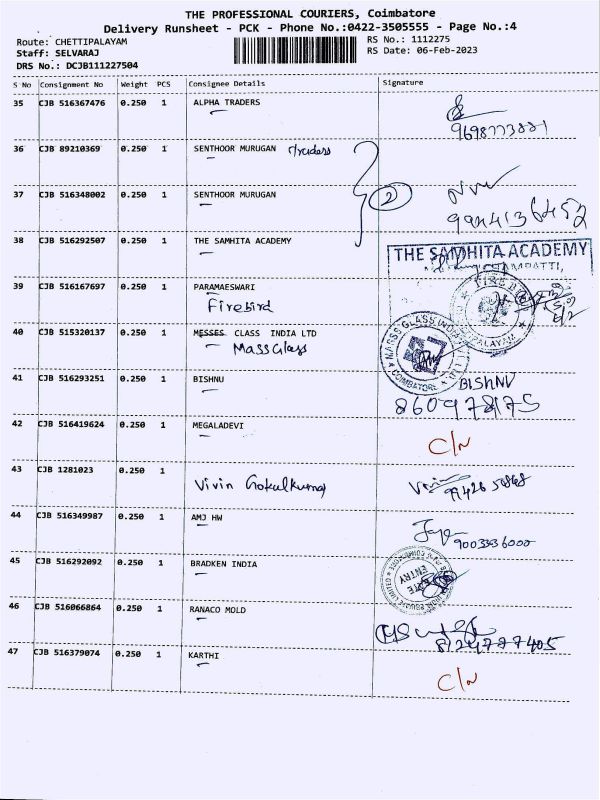 THE PROFESSIONAL COURIERS, Coimbatore
Delivery Runsheet - PCK - Phone No.:0422-3505555 - Page No.:4
Route: CHETTIPALAYAM RS No.: 1112275
Staff: SELVARAJ RS Date: 06-Feb-2023
DRS No.: DCJB111227504
S No Consignment No Weight PCS Consignee Details Signature
35 CJB 516367476 0.250 1 ALPHA TRADERS
36 CJB 89210369 0.250 1 SENTHOOR MURUGAN Traders
2
37 CJB 516348002 0.250 1 SENTHOOR MURUGAN
38 CJB 516292507 0.250 1 THE SAMHITA ACADEMY
THE SAMHITA ACADEMY
39 CJB 516167697 0.250 1 PARAMAESWARI
Firebird
40 CJB 515320137 0.250 1 MESSES CLASS INDIA LTD
Mass Glass
COIMBATORE
41 CJB 516293251 0.250 1 BISHNU BISHNU
42 CJB 516419624 0.250 1 MEGALADEVI C/N
43 CJB 1281023 0.250 1 Vivin Gokulkumar
44 CJB 516349987 0.250 1 AMJ HW
45 CJB 516292092 0.250 1 BRADKEN INDIA
GATE ENTRY
46 CJB 516066864 0.250 1 RANACO MOLD
8124777405
47 CJB 516379074 0.250 1 KARTHI C/N